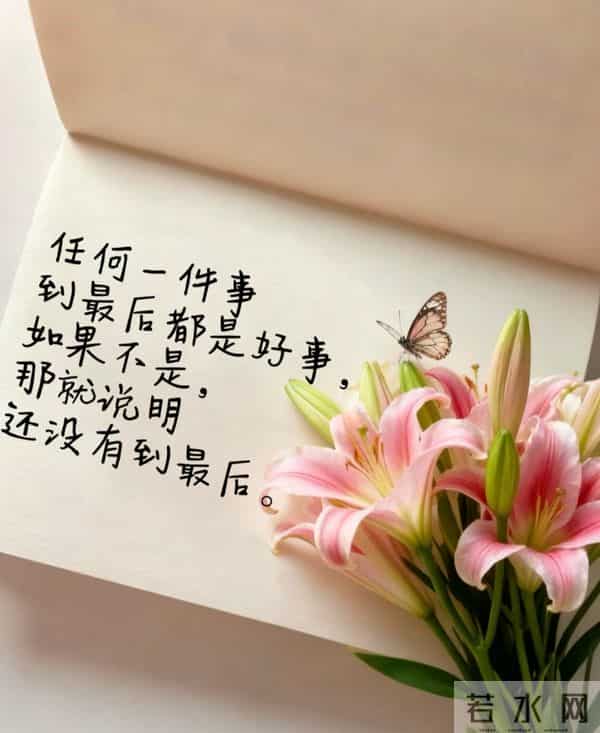 任何一件事
到最后都是好事，
如果不是，
那就说明
还没有到最后。
若水网